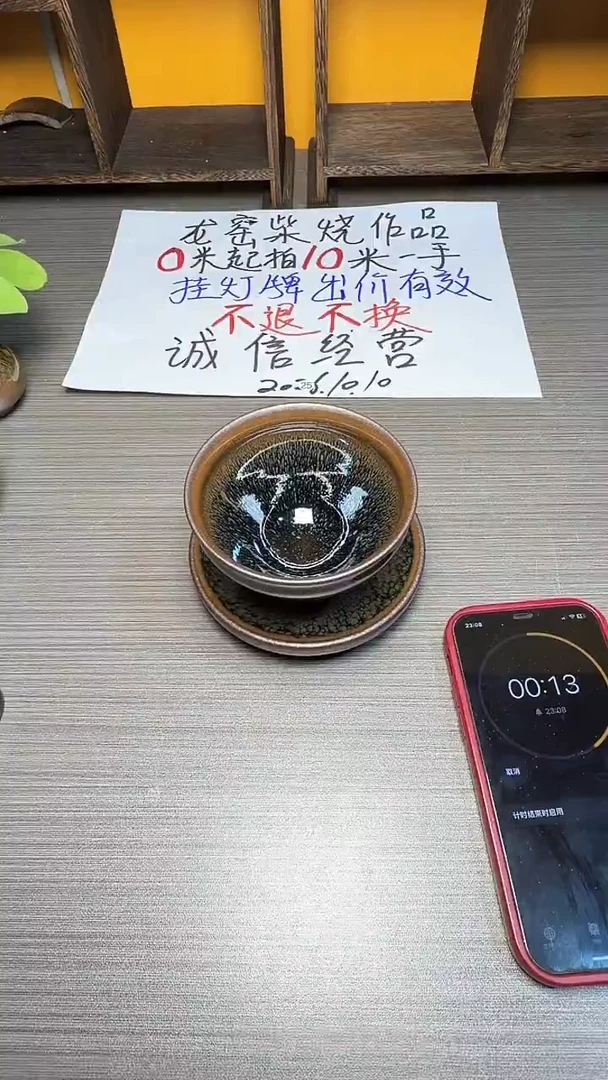 龙窑柴烧作品
0米起拍10米一手
挂灯牌出价有效
不退不换
诚信经营
2025.10.10
23:08
00:13
23:08
取消
计时结束时启用